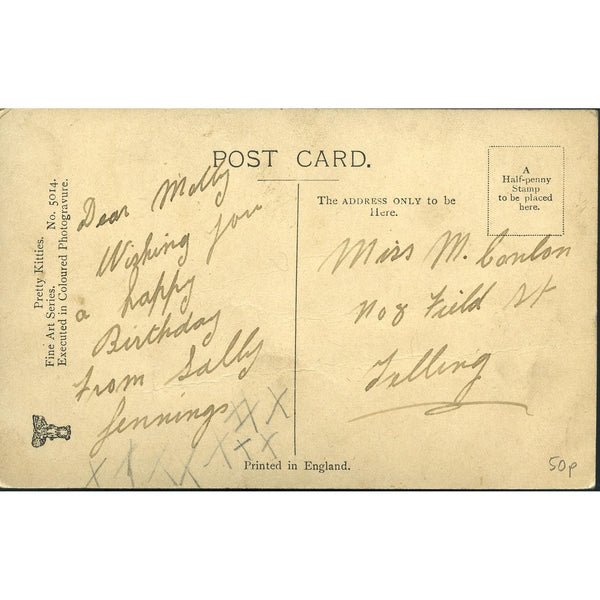 POST CARD.
Pretty Kitties.
Fine Art Series. No. 5014.
Executed in Coloured Photogravure.
Dear Molly
Wishing you
a happy
Birthday
From Sally
Jennings
X X X X X X X X X
The ADDRESS ONLY to be
Here.
A
Half-penny
Stamp
to be placed
here.
Miss M. Conlon
No 8 Field St
Felling
Printed in England.
50p